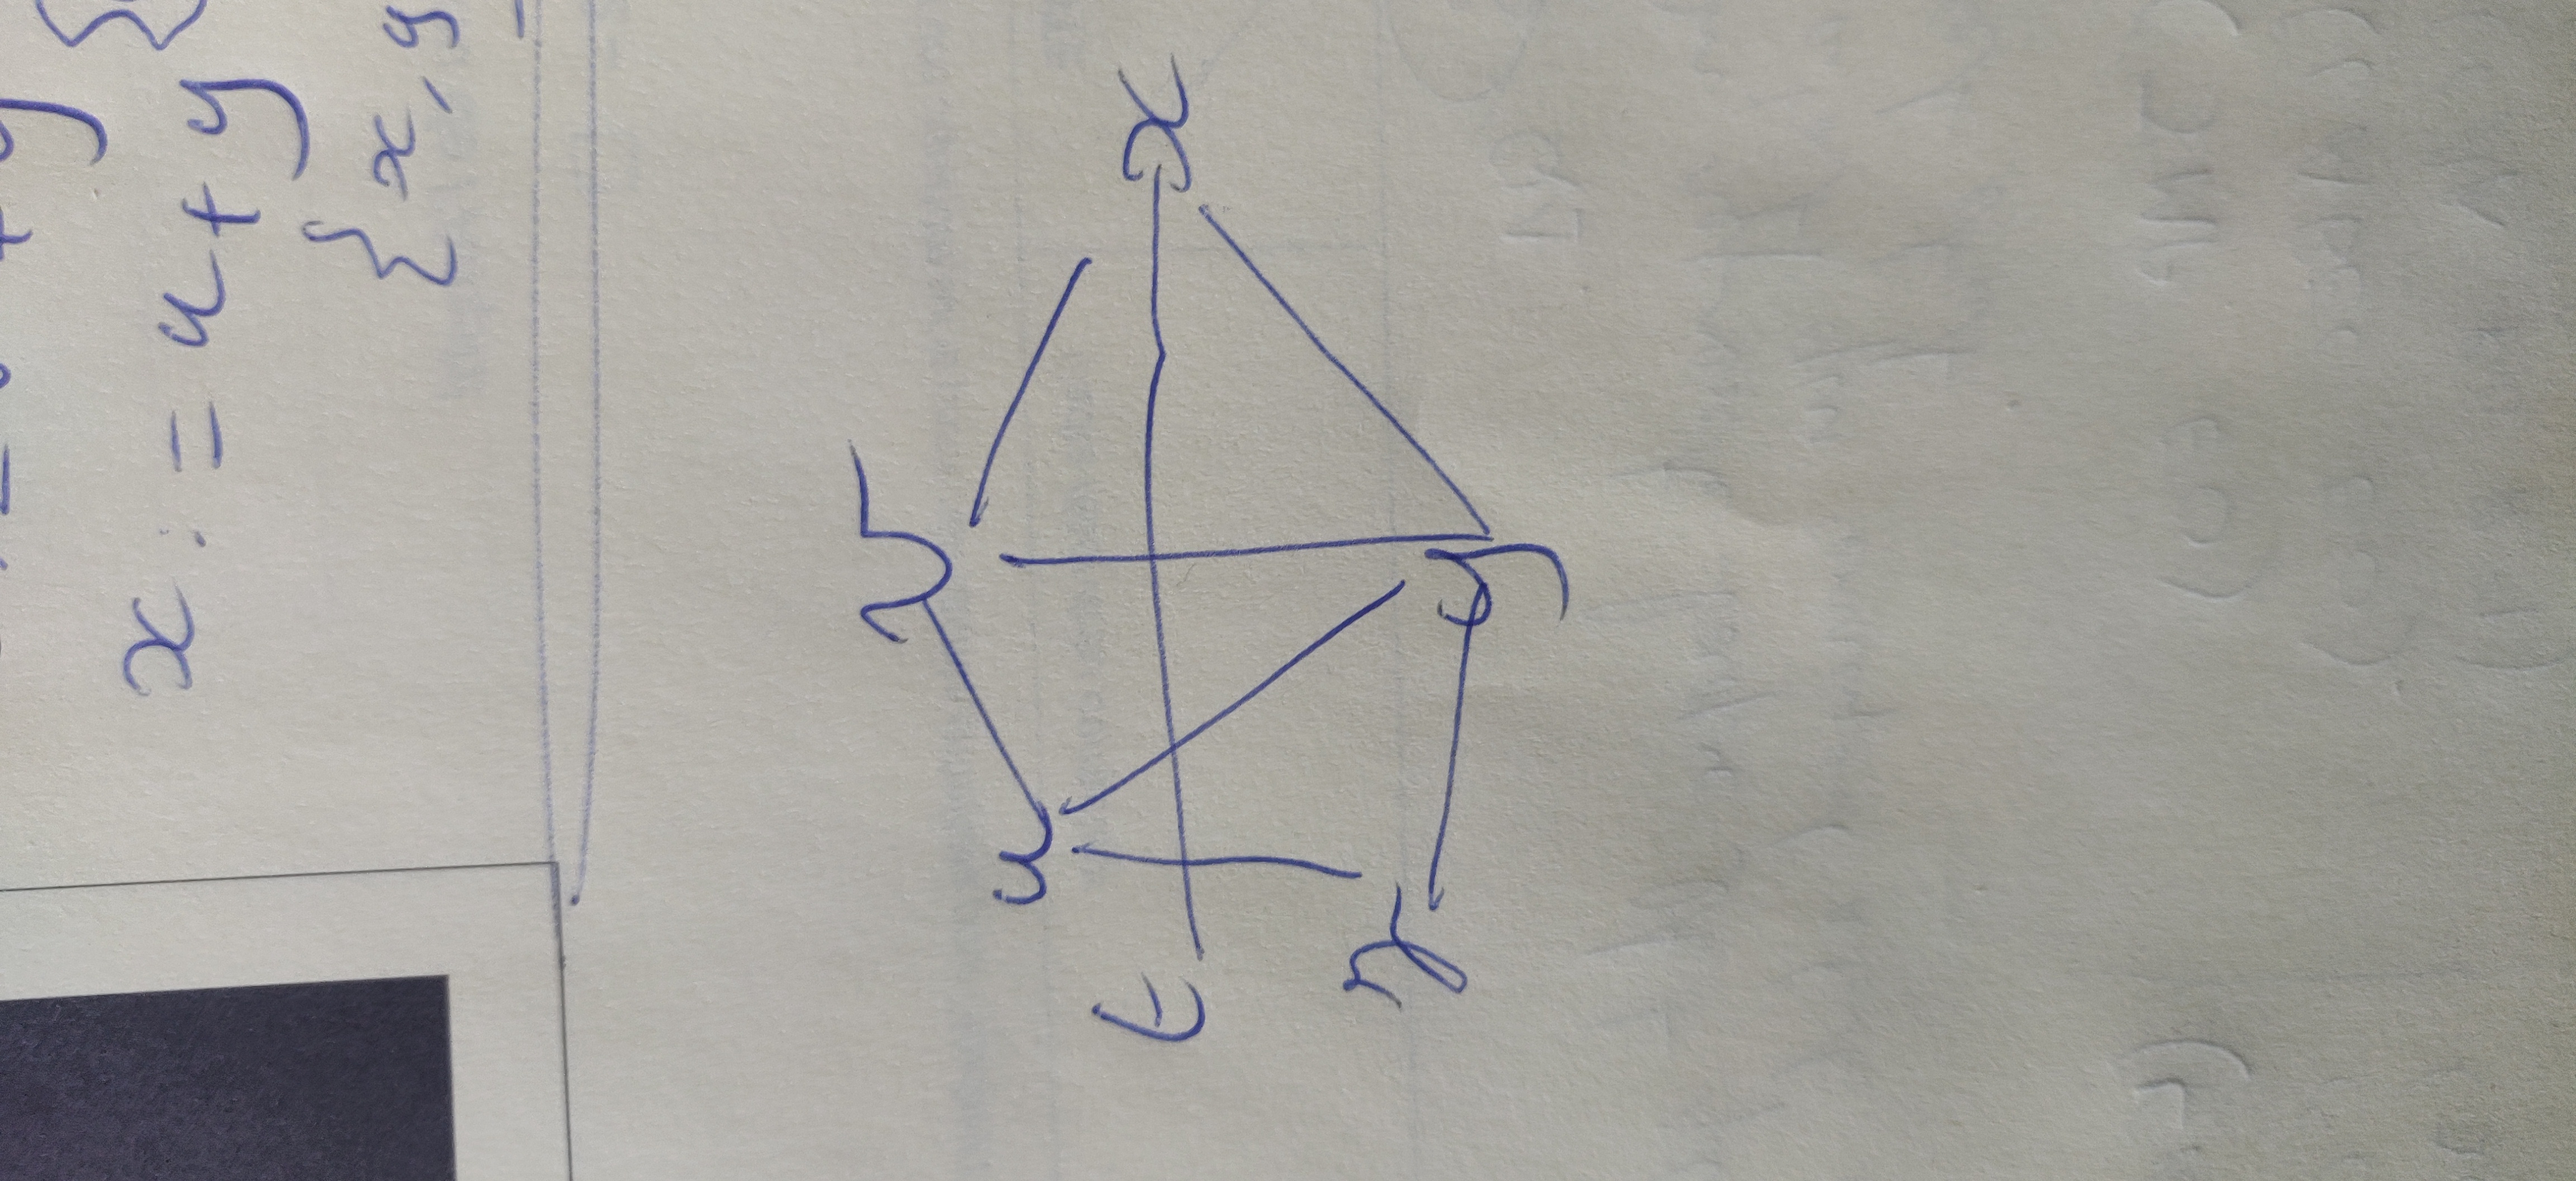 + y
x := u + y {
{x, y
v
u
t x
z y